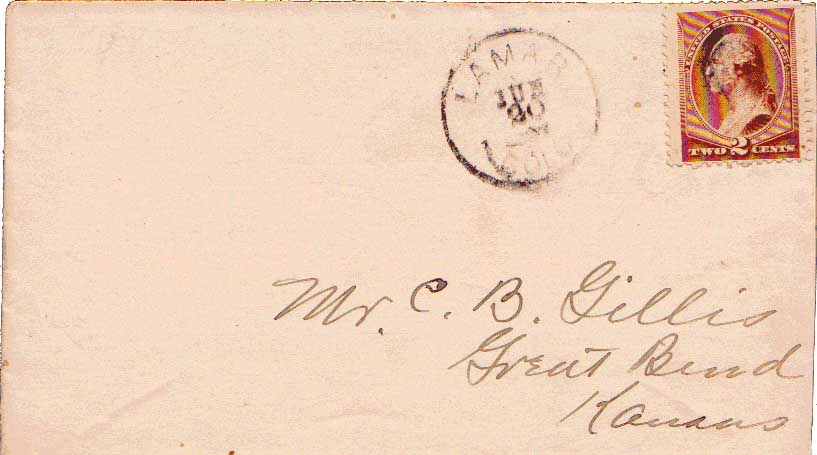 LAMAR
JUN
20
COLO
UNITED STATES POSTAGE
TWO 2 CENTS
Mr. C. B. Gillis
Great Bend
Kansas